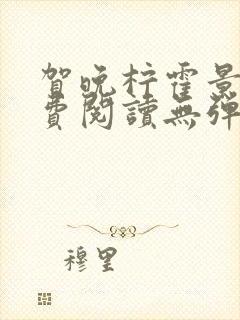 賀晚柠霍景
費閱讀無彈
穆里